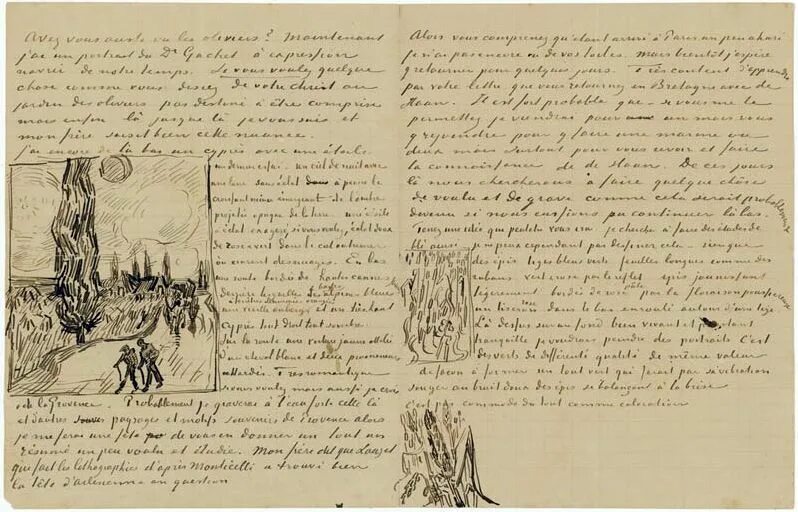 Avez vous aussi vu les oliviers? Maintenant
j'ai un portrait du Dr Gachet à expression
navrée de notre temps. Si vous voulez quelque
chose comme vous disiez de votre Christ au
jardin des oliviers pas destiné à être compris
mais enfin là jusque là je vous suis et
mon frère saisit bien cette nuance.
J'ai encore de là bas un cyprès avec une étoile
un dernier essai - un ciel de nuit avec
une lune sans éclat à peine le
croissant mince émergeant de l'ombre
projetée opaque de la terre - une étoile
à éclat exagéré, si vous voulez, éclat doux
de rose & vert dans le ciel outremer
où courent des nuages. En bas
une route bordée de hautes cannes
jaunes derrière lesquelles les basses Alpines bleues
une vieille auberge à fenêtres illuminées orangé et un très haut
cyprès tout droit tout sombre.
Sur la route une voiture jaune attelée
d'un cheval blanc et deux promeneurs
attardés. Très romantique
si vous voulez mais aussi je crois
de la Provence. Probablement je graverai à l'eau forte celle là
et d'autres paysages et motifs souvenirs de Provence alors
je me ferai une fête de vous en donner un tout un
résumé un peu voulu et étudié. Mon frère dit que Lauzet
qui fait les lithographies d'après Monticelli a trouvé bien
la tête d'arlésienne en question
Alors vous comprenez qu'étant arrivé à Paris un peu ahuri
je n'ai pas encore vu de vos toiles. Mais bientôt j'espère
y retourner pour quelques jours. Très content d'apprendre
par votre lettre que vous retournez en Bretagne avec de
Haan. Il est fort probable que - si vous me le
permettez je viendrai pour un mois vous
y rejoindre pour y faire une marine ou
deux mais surtout pour vous revoir et faire
la connaissance de de Haan. De ces jours
là nous chercherons à faire quelque chose
de voulu et de grave comme cela serait probablement
devenu si nous eussions pu continuer là bas.
Tenez une idée qui peutêtre vous ira je cherche à faire des études de
blé ainsi je ne peux cependant pas dessiner cela - rien que
des épis tiges bleues vertes feuilles longues comme des
rubans vert & rose par le reflet épis jaunissant
légèrement bordés de rose pâle par la floraison poussiéreuse
un liseron rose dans le bas enroulé autour d'une tige.
Là dessus sur un fond bien vivant et pourtant
tranquille je voudrais peindre des portraits C'est
des verts de différente qualité de même valeur
de façon à former un tout vert qui ferait par sa vibration
songer au bruit doux des épis se balançant à la brise
c'est pas commode du tout comme coloration